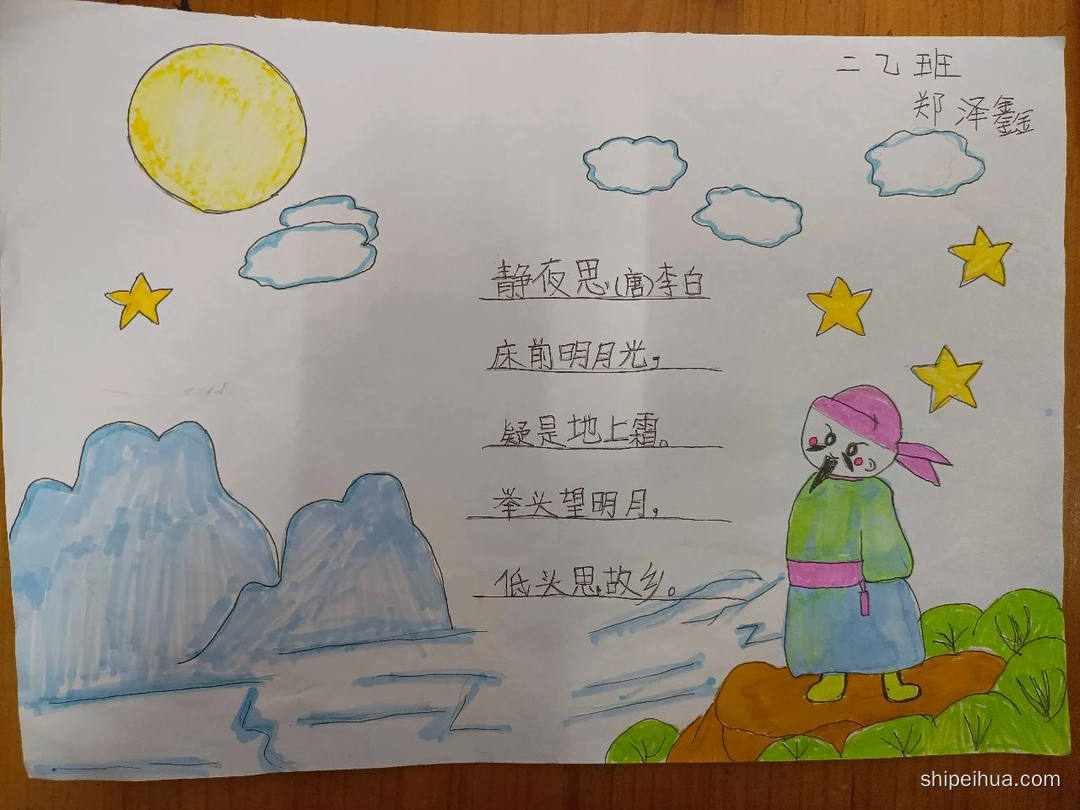 二乙班
郑泽鑫
静夜思(唐)李白
床前明月光，
疑是地上霜。
举头望明月，
低头思故乡。
shipeihua.com